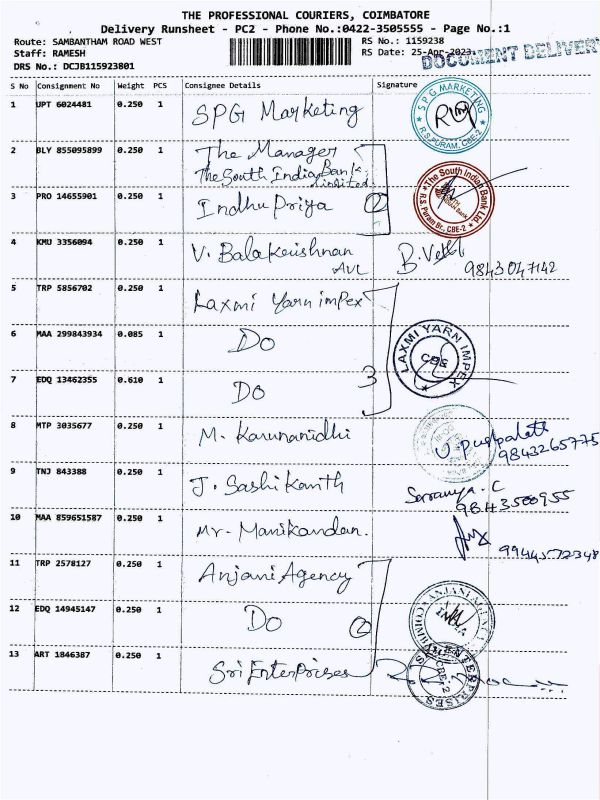 THE PROFESSIONAL COURIERS, COIMBATORE
Delivery Runsheet - PC2 - Phone No.:0422-3505555 - Page No.:1
Route: SAMBANTHAM ROAD WEST RS No.: 1159238
Staff: RAMESH RS Date: 25-Apr-2023
DOCUMENT DELIVERY
DRS No.: DCJB115923801
S No Consignment No Weight PCS Consignee Details Signature
1 UPT 6024481 0.250 1 SPG Marketing
SPG MARKETING R.S.PURAM, CBE-2
2 BLY 855095899 0.250 1 The Manager
The South India Bank
Limited
3 PRO 14655901 0.250 1 Indhu Priya 2
The South Indian Bank Ltd R.S. Puram Br., CBE-2
4 KMU 3356094 0.250 1 V. Balakrishnan
9843047142
5 TRP 5856702 0.250 1 Laxmi Yarn impex
6 MAA 299843934 0.085 1 Do
LAXMI YARN IMPEX CBE
7 EDQ 13462355 0.610 1 Do 3
8 MTP 3035677 0.250 1 M. Karunanidhi
9843265775
9 TNJ 843388 0.250 1 J. Sashikanth
Saranya.C
9843500955
10 MAA 859651587 0.250 1 Mr. Manikandan.
9944572348
11 TRP 2578127 0.250 1 Anjani Agency
12 EDQ 14945147 0.250 1 Do 2
ANJANI AGENCY
13 ART 1846387 0.250 1 Sri Enterprises
ENTERPRISES CBE-2